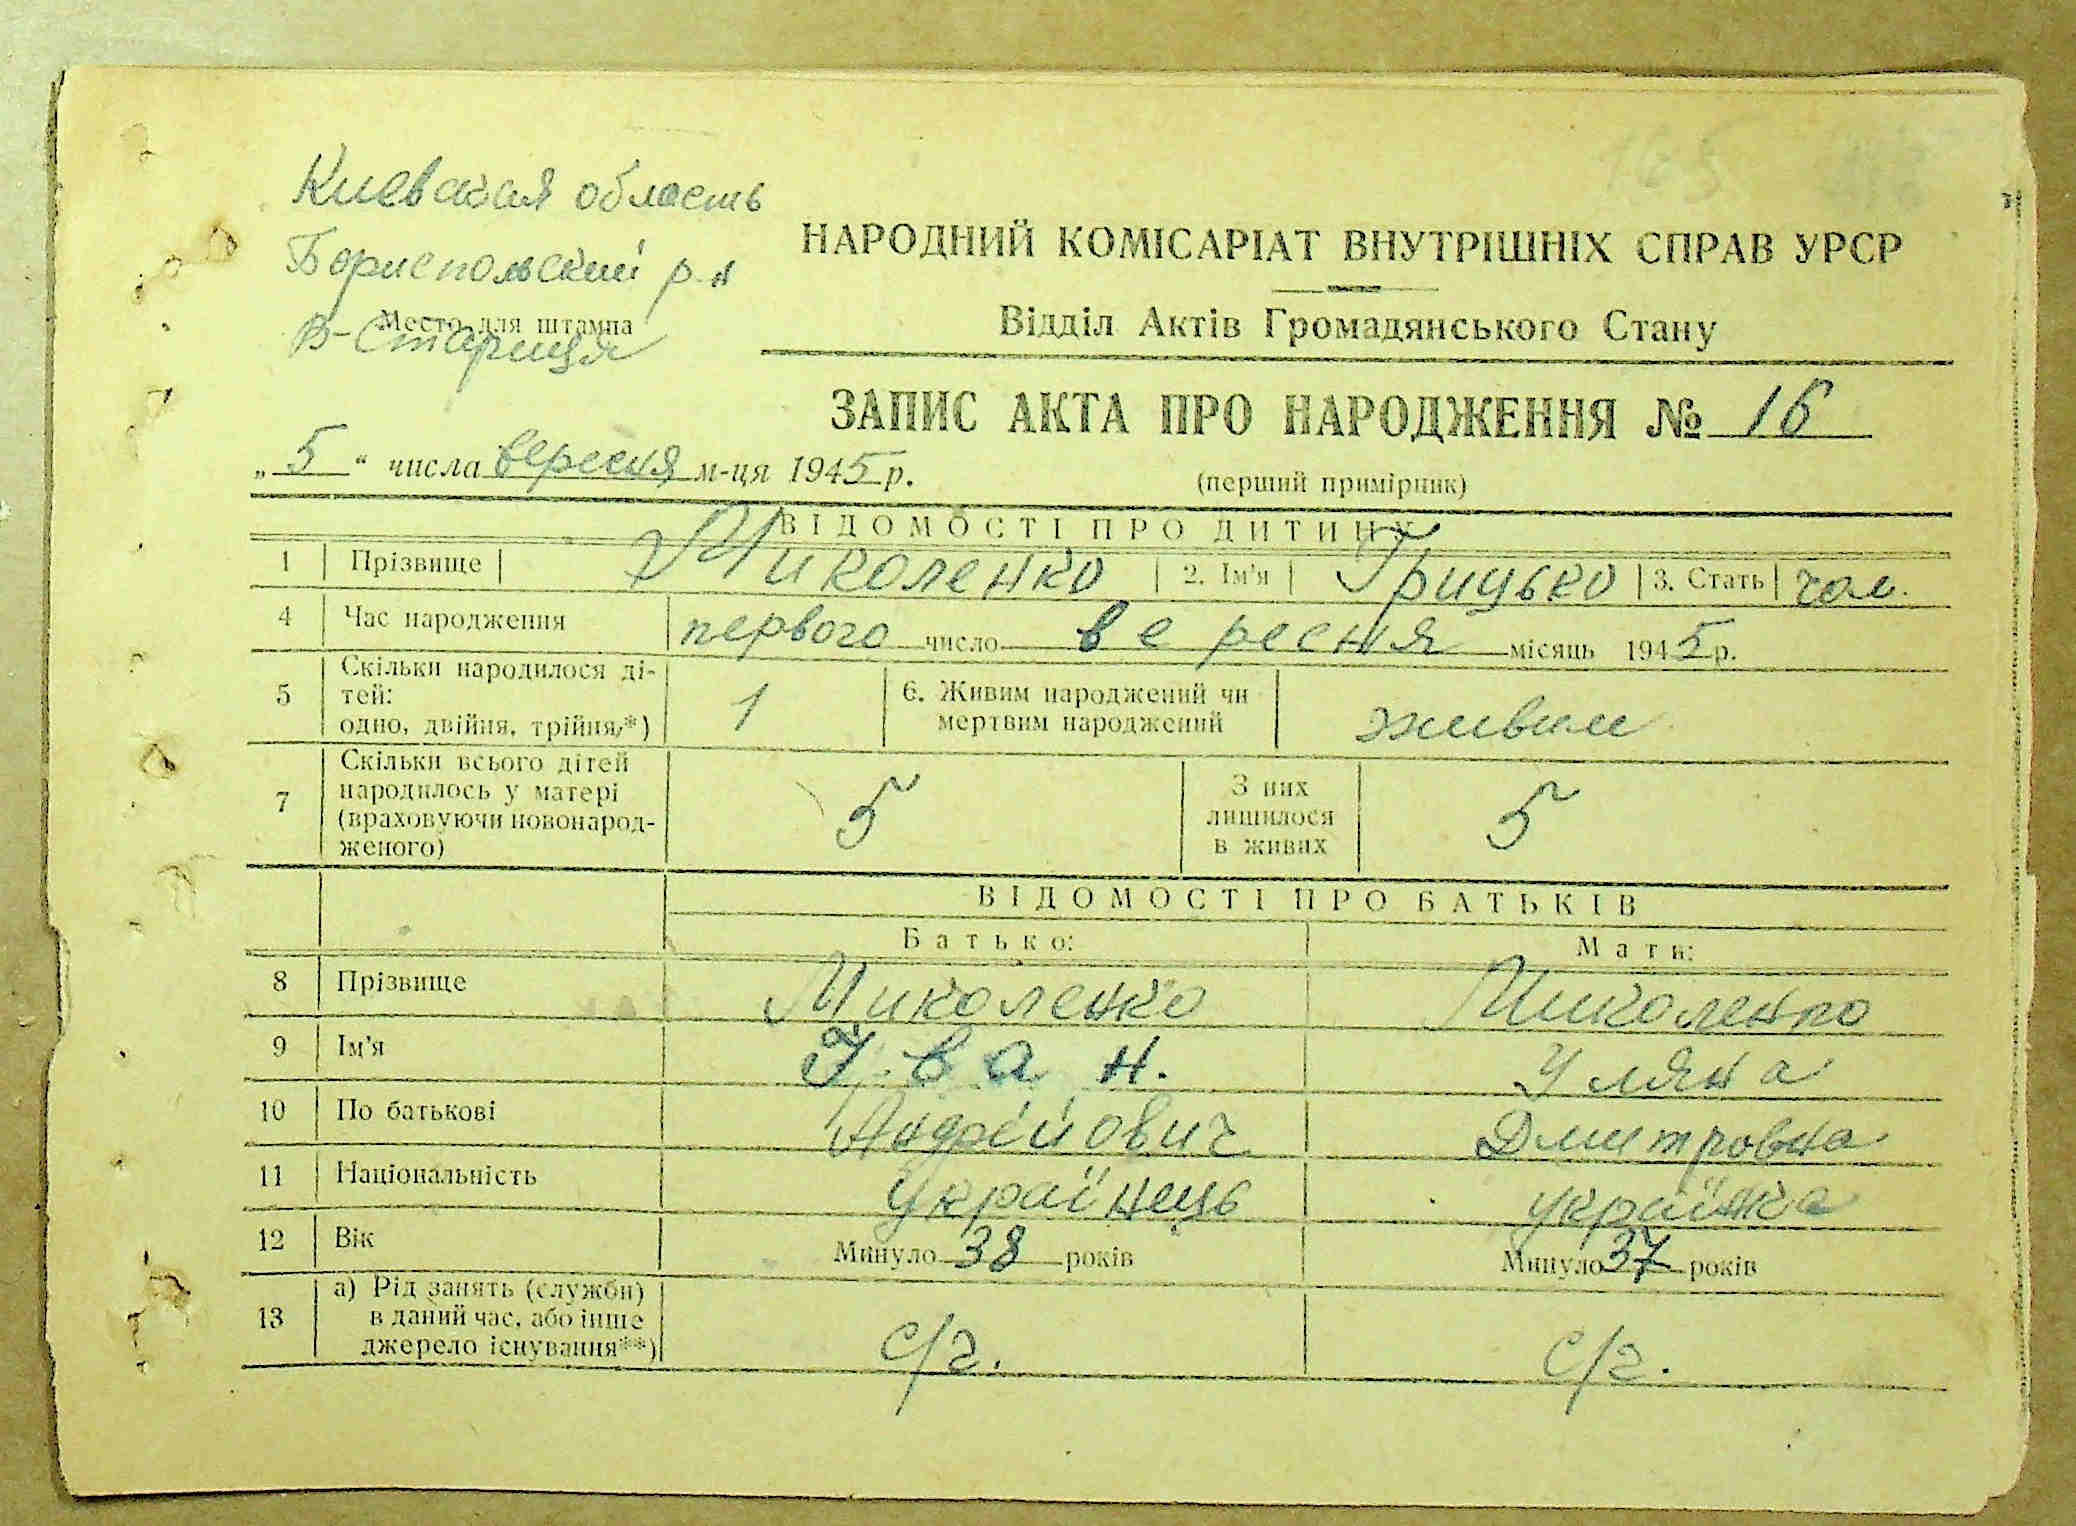 Киевская область
Бориспольский р-н
Место для штампа
В-Стариця
НАРОДНИЙ КОМІСАРІАТ ВНУТРІШНІХ СПРАВ УРСР
Відділ Актів Громадянського Стану
ЗАПИС АКТА ПРО НАРОДЖЕННЯ № 16
„5“ числа вересня м-ця 1945 р.
(перший примірник)
ВІДОМОСТІ ПРО ДИТИНУ
1 Прізвище Миколенко 2. Ім'я Грицько 3. Стать чол.
4 Час народження первого число вересня місяць 1945 р.
5 Скільки народилося ді-
тей:
одно, двійня, трійня,*) 1 6. Живим народжений чи
мертвим народжений живим
7 Скільки всього дітей
народилось у матері
(враховуючи новонарод-
женого) 5 З них
лишилося
в живих 5
ВІДОМОСТІ ПРО БАТЬКІВ
Батько: Мати:
8 Прізвище Миколенко Миколенко
9 Ім'я Іван. Уляна
10 По батькові Андрійович Дмитровна
11 Національність Українець українка
12 Вік Минуло 38 років Минуло 37 років
13 а) Рід занять (служби)
в даний час, або інше
джерело існування**) с/г. с/г.